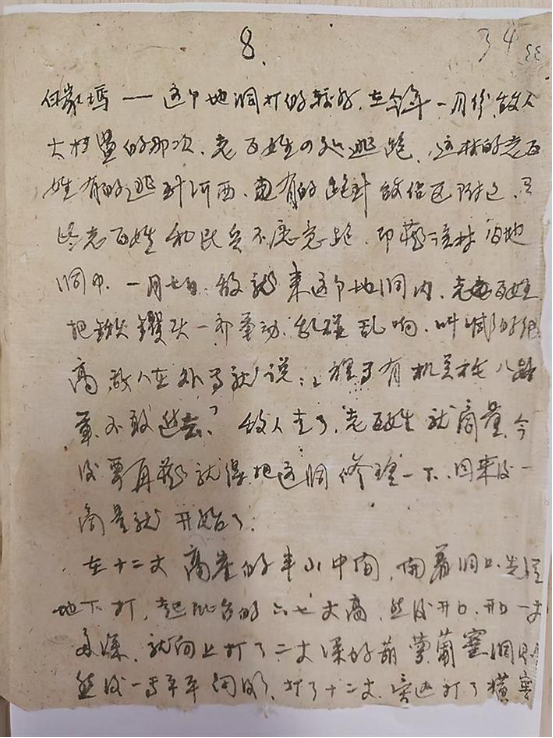 8.
34
白家塢 — 这个地洞打的较好，在今年一月份，敌人
大扫荡的那次，老百姓四处逃跑，这村的老百
姓有的逃到河西，也有的跑到敌佔区附近，
老百姓和民兵不愿意跑，即藏该村的地
洞中，一月七日，敌就来这个地洞内，老百姓
把铁鍁镢头一齐拿动，乱碰乱响，叫喊的很
高，敌人在外了就说："里了有机关枪八路
军不敢进去"，敌人走了，老百姓就商量，今
后要再藏就得把这洞修理一下，回来后一
商量就开始了。
在十二丈高崖的半山中间，向着洞口先从
地下打，起的六七丈高，然后开口，开口一丈
多深，就向上打了二丈深的葫芦窑洞，
然后一直平平向，打了十二丈，打了横窑